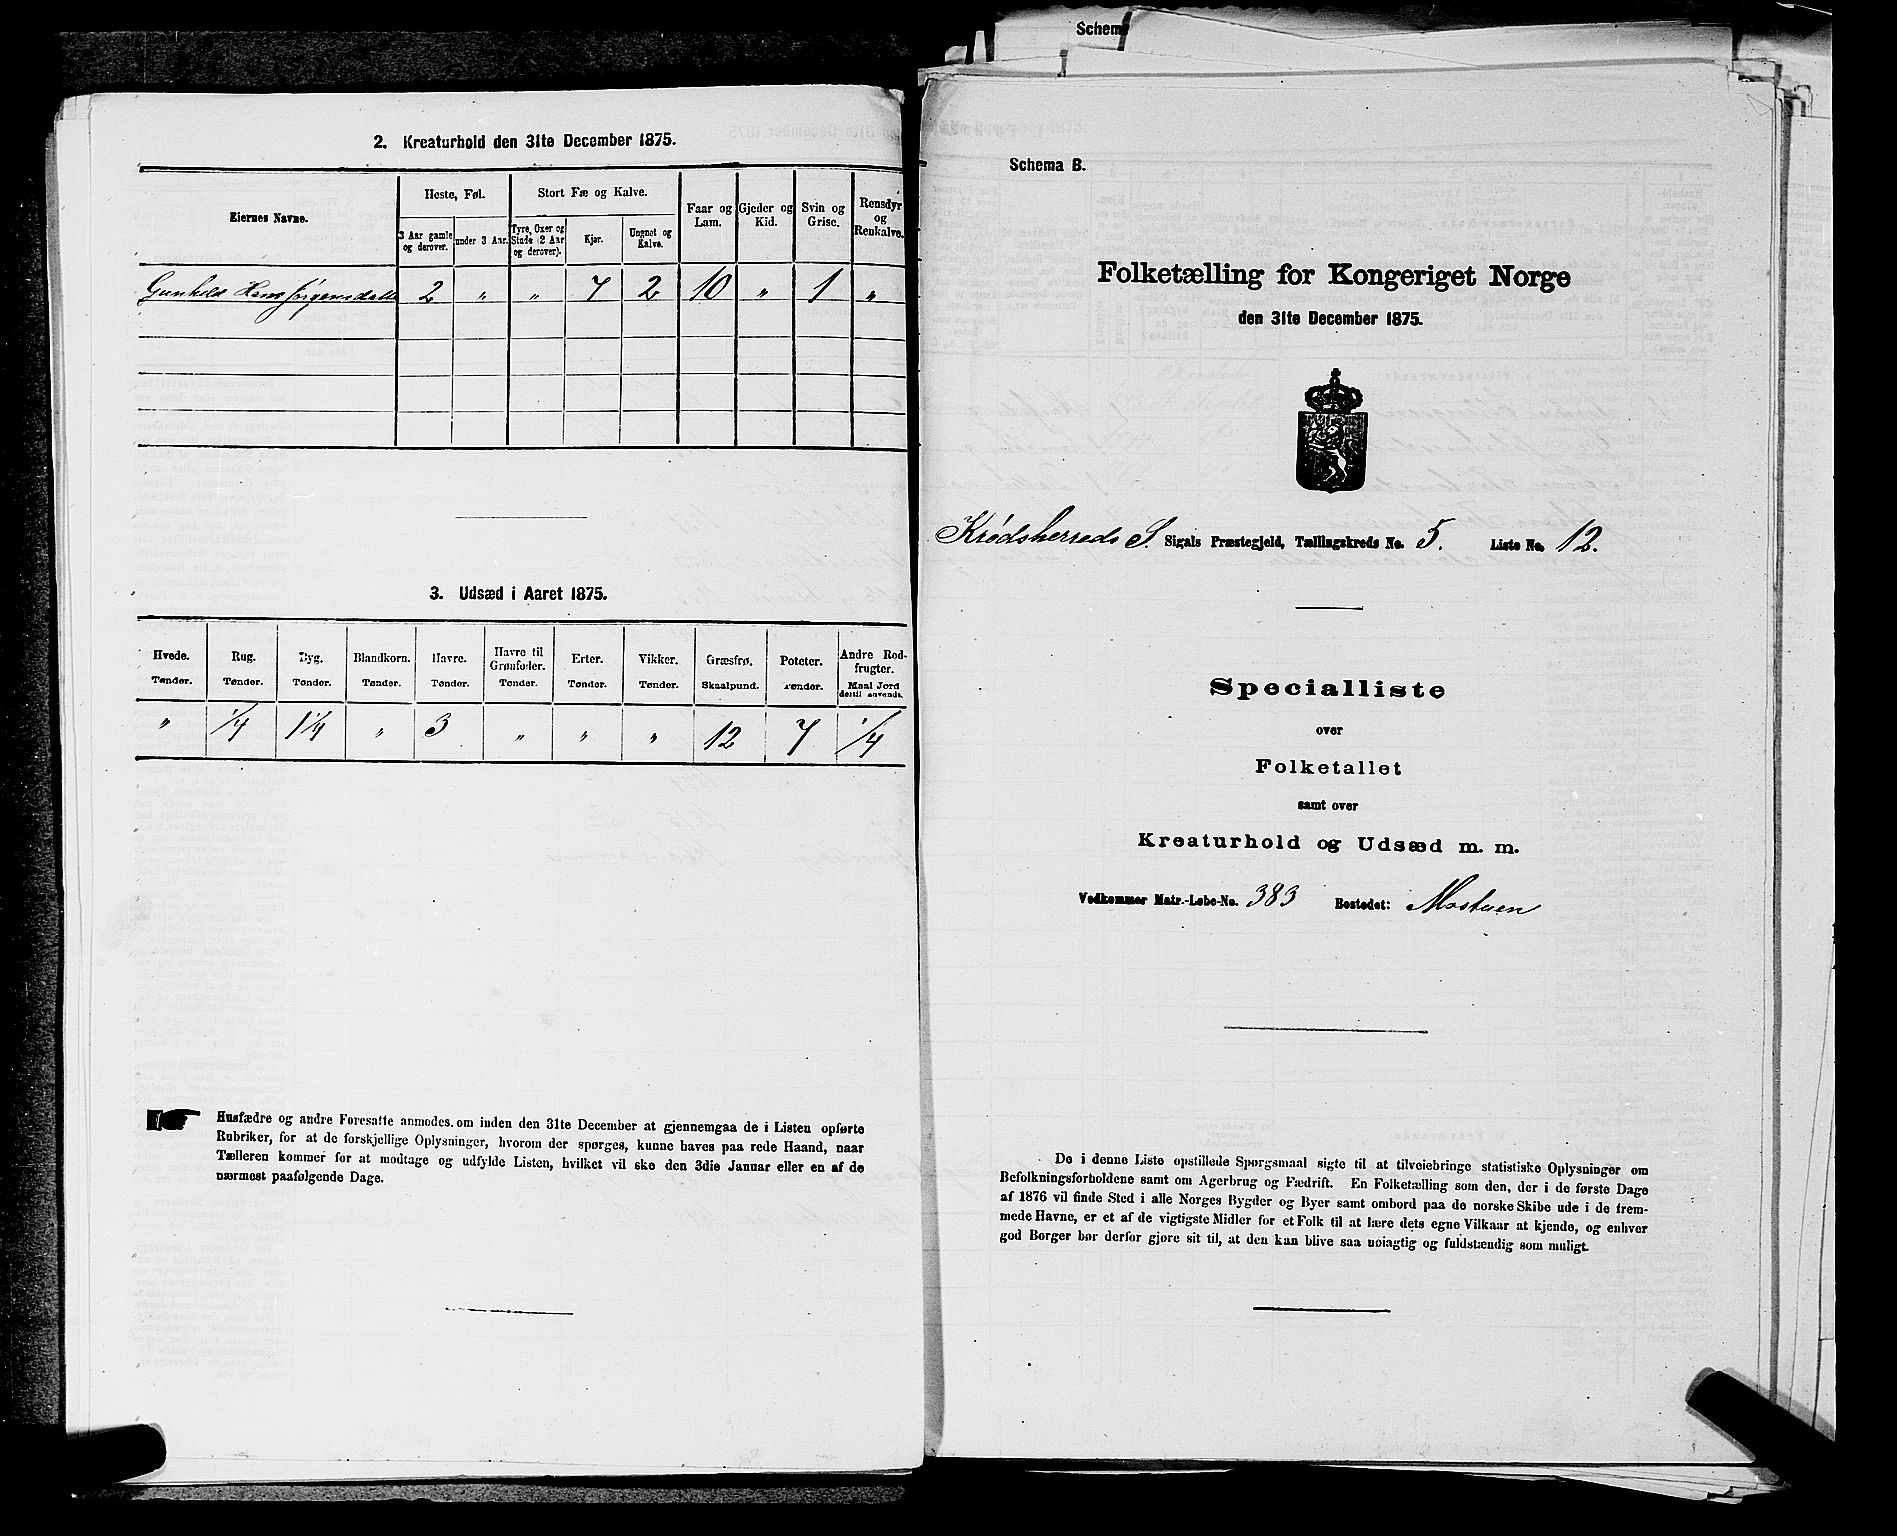 2. Kreaturhold den 31te December 1875.
Eiernes Navne.
Heste, Føl.
Stort Fæ og Kalve.
Faar og Lam.
Gjeder og Kid.
Svin og Grise.
Rensdyr og Renkalve.
3 Aar gamle og derover.
under 3 Aar.
Tyre, Oxer og Stude (2 Aar og derover).
Kjør.
Ungnet og Kalve.
Gunhild 2 " " 7 2 10 " 1 "
3. Udsæd i Aaret 1875.
Hvede. Rug. Byg. Blandkorn. Havre. Havre til Grønfoder. Erter. Vikker. Græsfrø. Poteter. Andre Rodfrugter.
Tønder. Tønder. Tønder. Tønder. Tønder. Tønder. Tønder. Tønder. Skaalpund. Tønder. Maal Jord dertil anvendt.
" 1/4 1 1/4 " 3 " " " 12 7 1/4
Husfædre og andre Foresatte anmodes om inden den 31te December at gjennemgaa de i Listen opførte
Rubriker, for at de forskjellige Oplysninger, hvorom der spørges, kunne haves paa rede Haand, naar
Tælleren kommer for at modtage og udfylde Listen, hvilket vil ske den 3die Januar eller en af de
nærmest paafølgende Dage.
Schem
Schema B.
Folketælling for Kongeriget Norge
den 31te December 1875.
Krødsherreds S. Sigdals Præstegjeld, Tællingskreds No. 5. Liste No. 12.
Specialliste
over
Folketallet
samt over
Kreaturhold og Udsæd m. m.
Vedkommer Matr.-Løbe-No. 383 Bostedet: Mostuen
De i denne Liste opstillede Spørgsmaal sigte til at tilveiebringe statistiske Oplysninger om
Befolkningsforholdene samt om Agerbrug og Fædrift. En Folketælling som den, der i de første Dage
af 1876 vil finde Sted i alle Norges Bygder og Byer samt ombord paa de norske Skibe ude i de frem-
mede Havne, er et af de vigtigste Midler for et Folk til at lære dets egne Vilkaar at kjende, og enhver
god Borger bør derfor gjøre sit til, at den kan blive saa nøiagtig og fuldstændig som muligt.